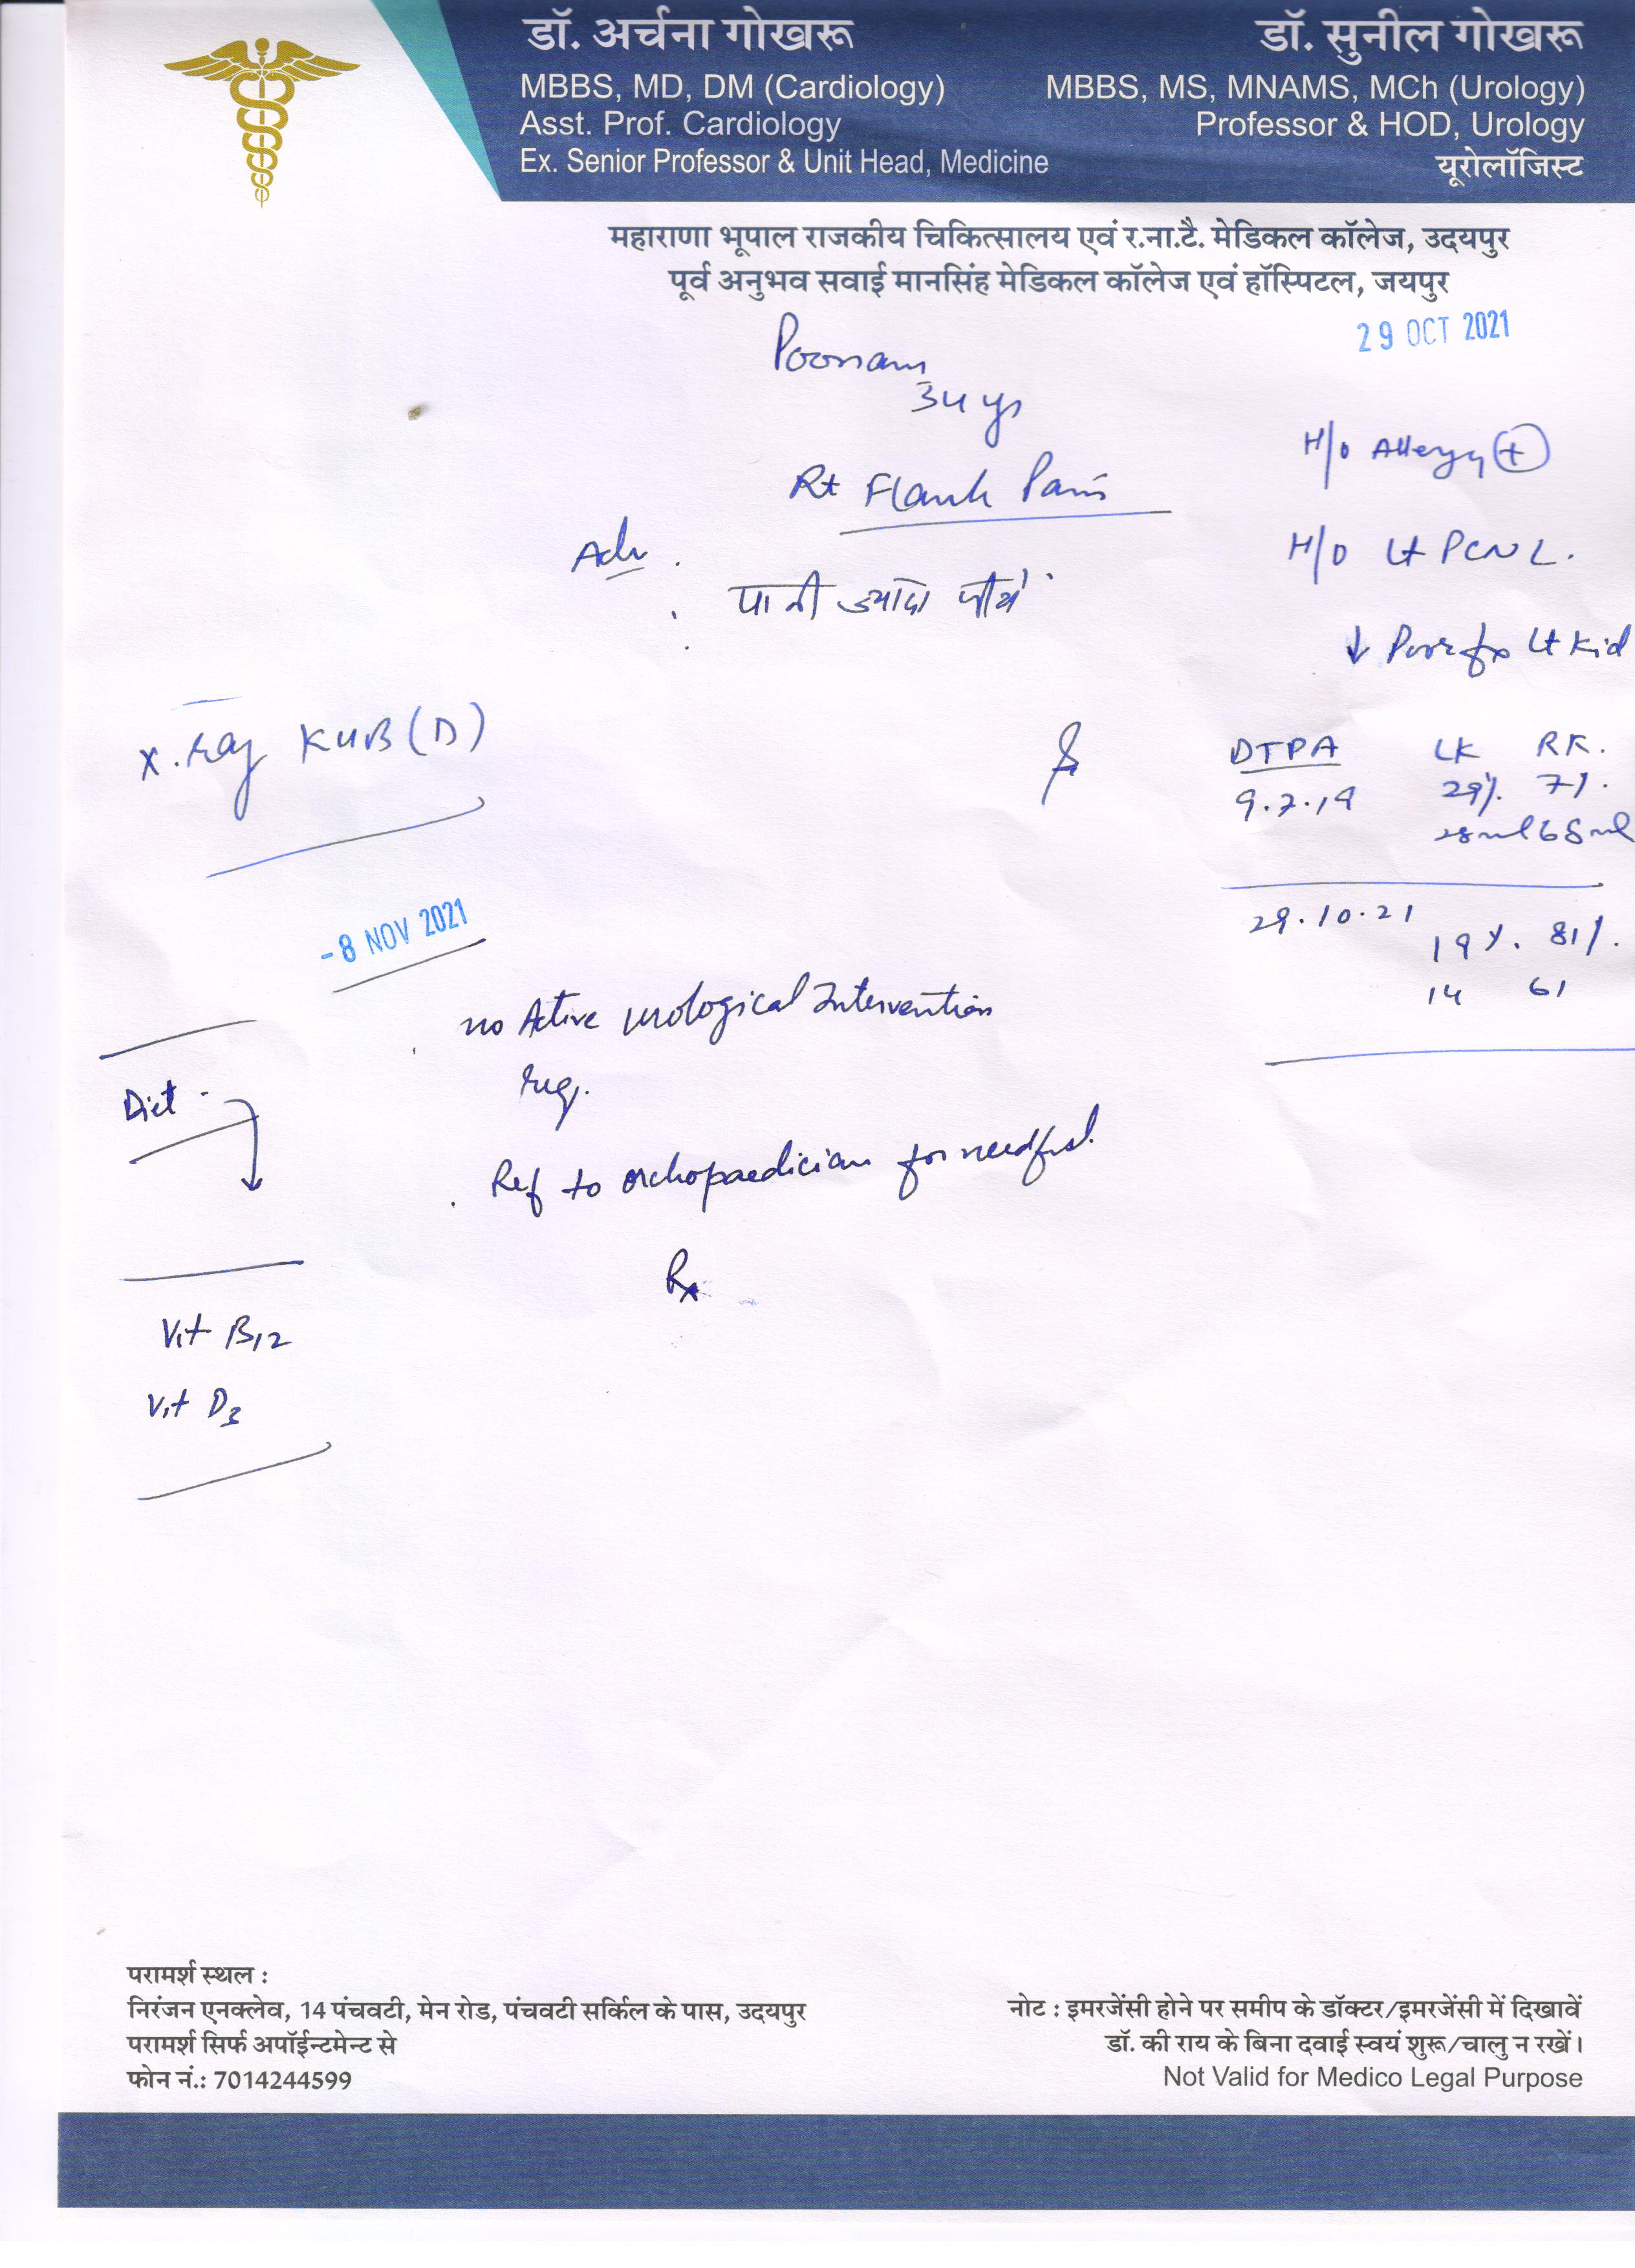 डॉ. अर्चना गोखरू
MBBS, MD, DM (Cardiology)
Asst. Prof. Cardiology
Ex. Senior Professor & Unit Head, Medicine
डॉ. सुनील गोखरू
MBBS, MS, MNAMS, MCh (Urology)
Professor & HOD, Urology
यूरोलॉजिस्ट
महाराणा भूपाल राजकीय चिकित्सालय एवं र.ना.टै. मेडिकल कॉलेज, उदयपुर
पूर्व अनुभव सवाई मानसिंह मेडिकल कॉलेज एवं हॉस्पिटल, जयपुर
29 OCT 2021
Poonam
34 ys
H/o Allergy (+)
Rt Flank Pain
Adv.
H/O Lt PCNL.
पानी ज्यादा पीयें
↓ Poor fx Lt Kid
X.ray KUB (D)
DTPA LK RK.
9.7.19 29%. 71.
28ml 68ml
-8 NOV 2021
29.10.21
19%. 81%.
14 61
no Active urological Intervention
req.
Diet
Ref to orthopaedician for needful.
Rx
Vit B12
Vit D3
परामर्श स्थल :
निरंजन एनक्लेव, 14 पंचवटी, मेन रोड, पंचवटी सर्किल के पास, उदयपुर
परामर्श सिर्फ अपॉईन्टमेन्ट से
फोन नं.: 7014244599
नोट : इमरजेंसी होने पर समीप के डॉक्टर/इमरजेंसी में दिखावें
डॉ. की राय के बिना दवाई स्वयं शुरू/चालु न रखें।
Not Valid for Medico Legal Purpose